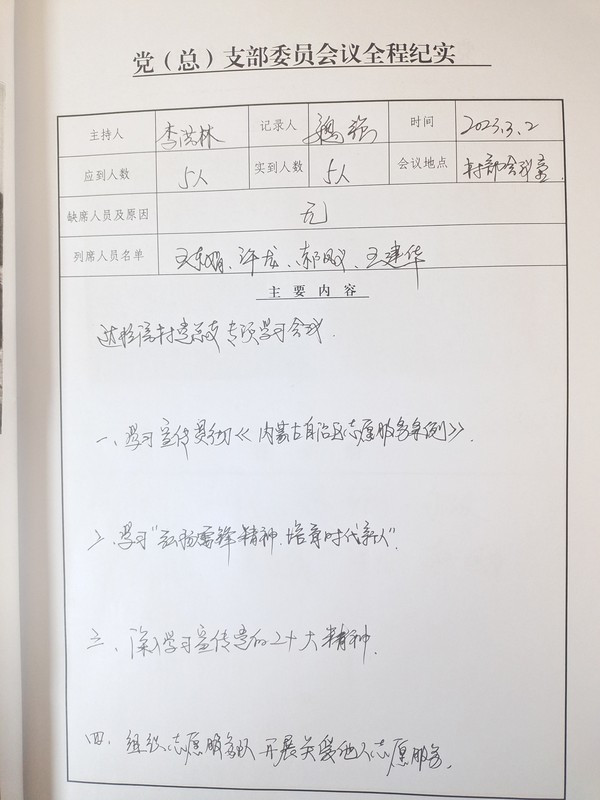 党（总）支部委员会议全程纪实
主持人 李洪林 记录人 魏强 时间 2023.3.2
应到人数 5人 实到人数 5人 会议地点 村部会议室
缺席人员及原因 无
列席人员名单 王东娟、许龙、郝凤仪、王建华
主要内容
村党总支专项学习会议.
一、学习宣传贯彻《内蒙古自治区志愿服务条例》.
二、学习"弘扬雷锋精神.培育时代新人".
三、深入学习宣传党的二十大精神.
四.组织志愿服务队开展关爱他人志愿服务.